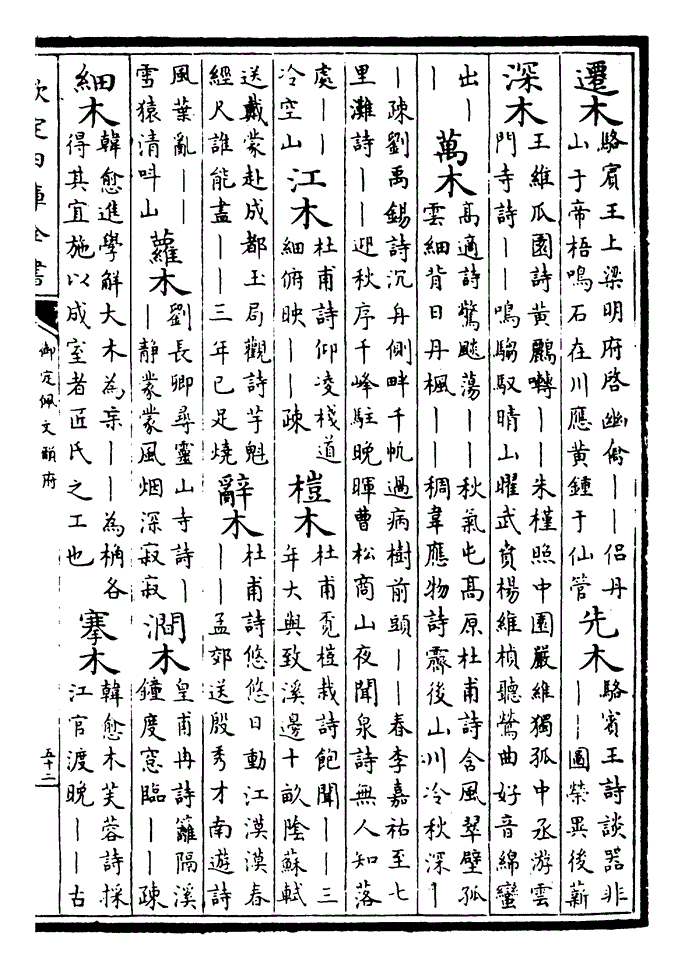 遷木駱賓王上梁明府啓幽谷——侣丹山于帝梧鳴石在川應黄鍾于仙管先木駱賓王詩談器非——圖榮異後薪
深木王維瓜園詩黄鸝囀——朱槿照中園嚴維獨孤中丞游雲門寺詩——鳴騶馭晴山曜武賁楊維楨聽鶯曲好音綿蠻
出——萬木高適詩驚飈蕩——秋氣屯高原杜甫詩含風翠壁孤雲細背日丹楓——稠韋應物詩霽後山川冷秋深—
—疎劉禹錫詩沉舟側畔千帆過病樹前頭——春李嘉祐至七里灘詩——迎秋序千峰駐晚暉曹松商山夜聞泉詩無人知落
處——冷空山江木杜甫詩仰凌棧道細俯映——疎榿木杜甫覓榿栽詩飽聞——三年大與致溪邊十畝陰蘇軾
送戴蒙赴成都玉局觀詩芋魁經尺誰能盡——三年已足燒辭木杜甫詩悠悠日動江漠漠春——孟郊送殷秀才南遊詩
風葉亂——雪猿清叫山蘿木劉長卿尋靈山寺詩——靜蒙蒙風烟深寂寂澗木皇甫冉詩籬隔溪鐘度窓臨——疎
細木韓愈進學解大木為杗——為桷各得其宜施以成室者匠氏之工也搴木韓愈木芙蓉詩採江官渡晚——古
欽定四庫全書
御定佩文韻府
五十二